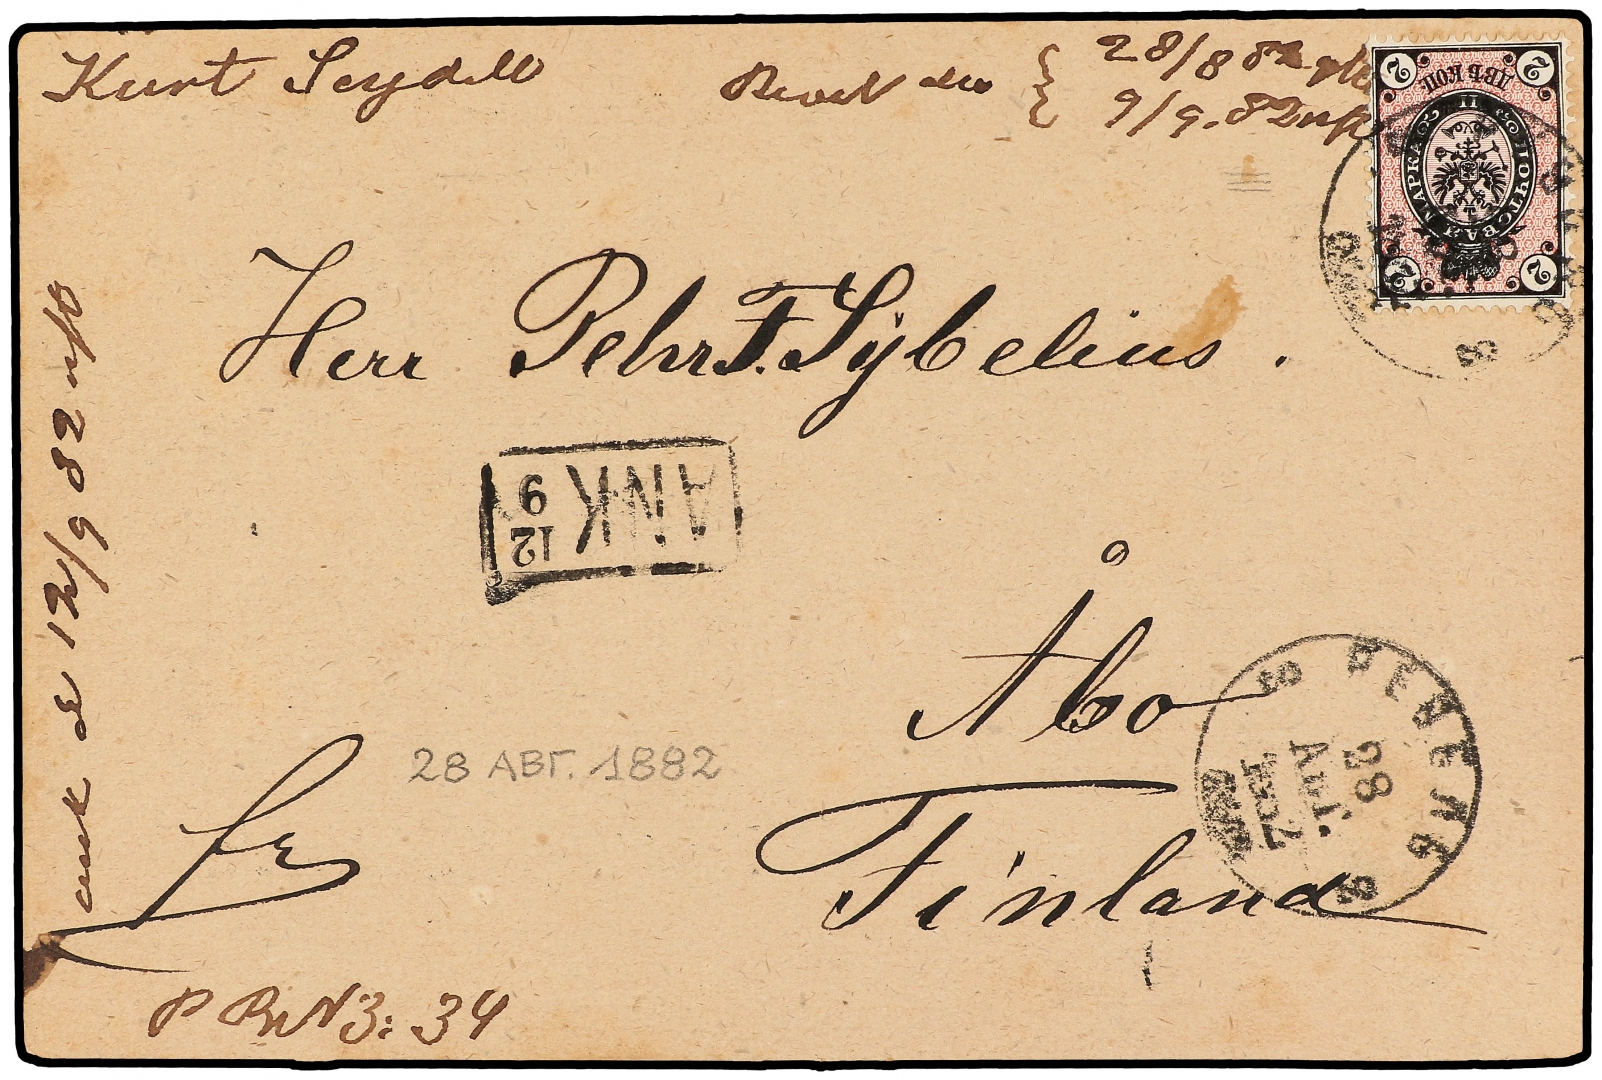 Kurt Seydell
Reval den { 28/8 82
9/9. 82 nst
2 ДВѢ КОП. 2
ПОЧТОВАЯ МАРКА
2 2
Herr Pehr F. Sybelius.
ANK 12
9
Åbo
Finland
fr
ank d 12/9 82 nst
28 АВГ. 1882
РЕВЕЛЬ
28
АВГ.
1882
P Br N 3: 34